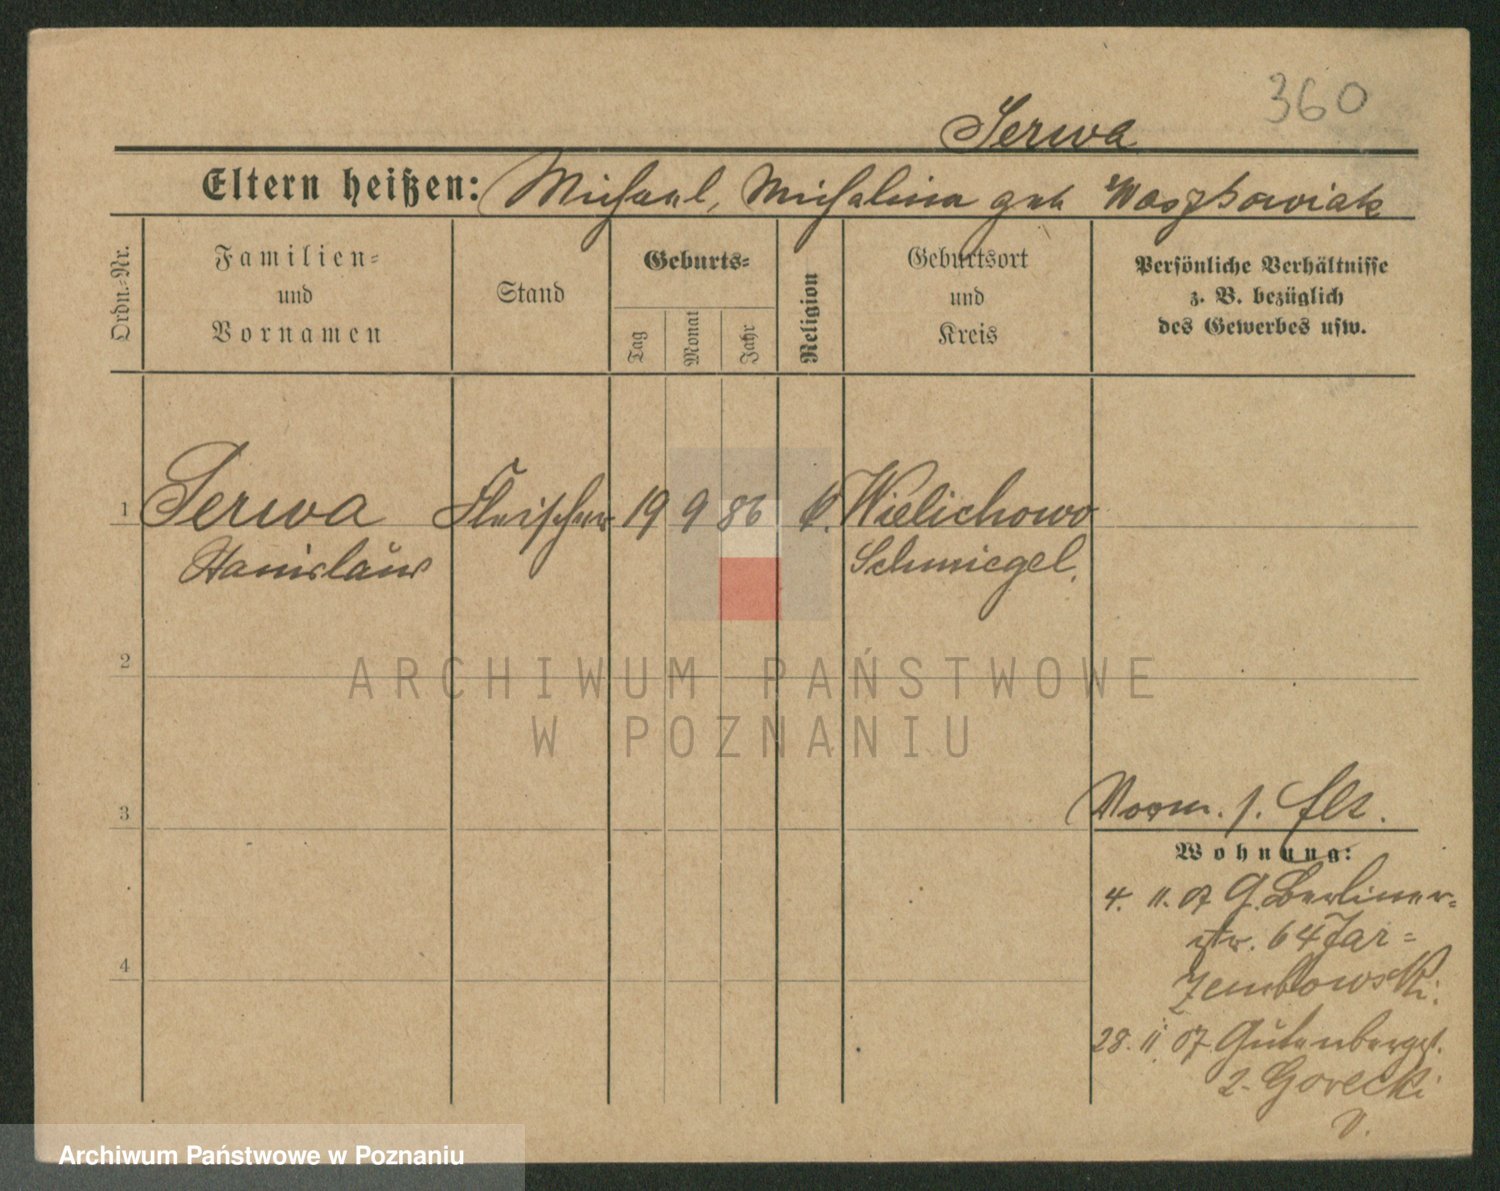 360
Serwa
Eltern heißen: Michael, Michalina geb Waszkowiak
Ordn.-Nr.
Familien-
und
Vornamen
Stand
Geburts-
Tag
Monat
Jahr
Religion
Geburtsort
und
Kreis
Persönliche Verhältnisse
z. B. bezüglich
des Gewerbes usw.
1 Serwa Fleischer 19 9 86 k. Wielichowo
Stanislaus Schmiegel.
2
ARCHIWUM PAŃSTWOWE
W POZNANIU
3
4
Wohnung:
4. 11. 07 G. Berliner-
str. 64 Jar-
zembowski.
28. 11. 07 Gutenbergst.
2. Gorecki
V.
Archiwum Państwowe w Poznaniu